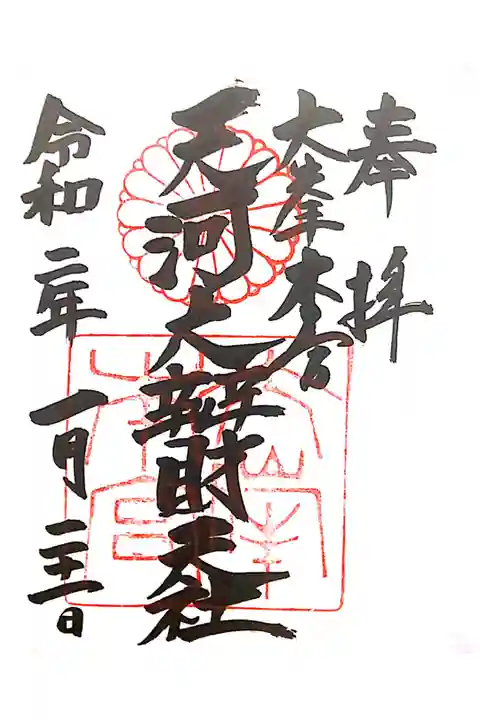 奉拝
大峯本宮
天河大辨財天社
令和二年一月二十一日